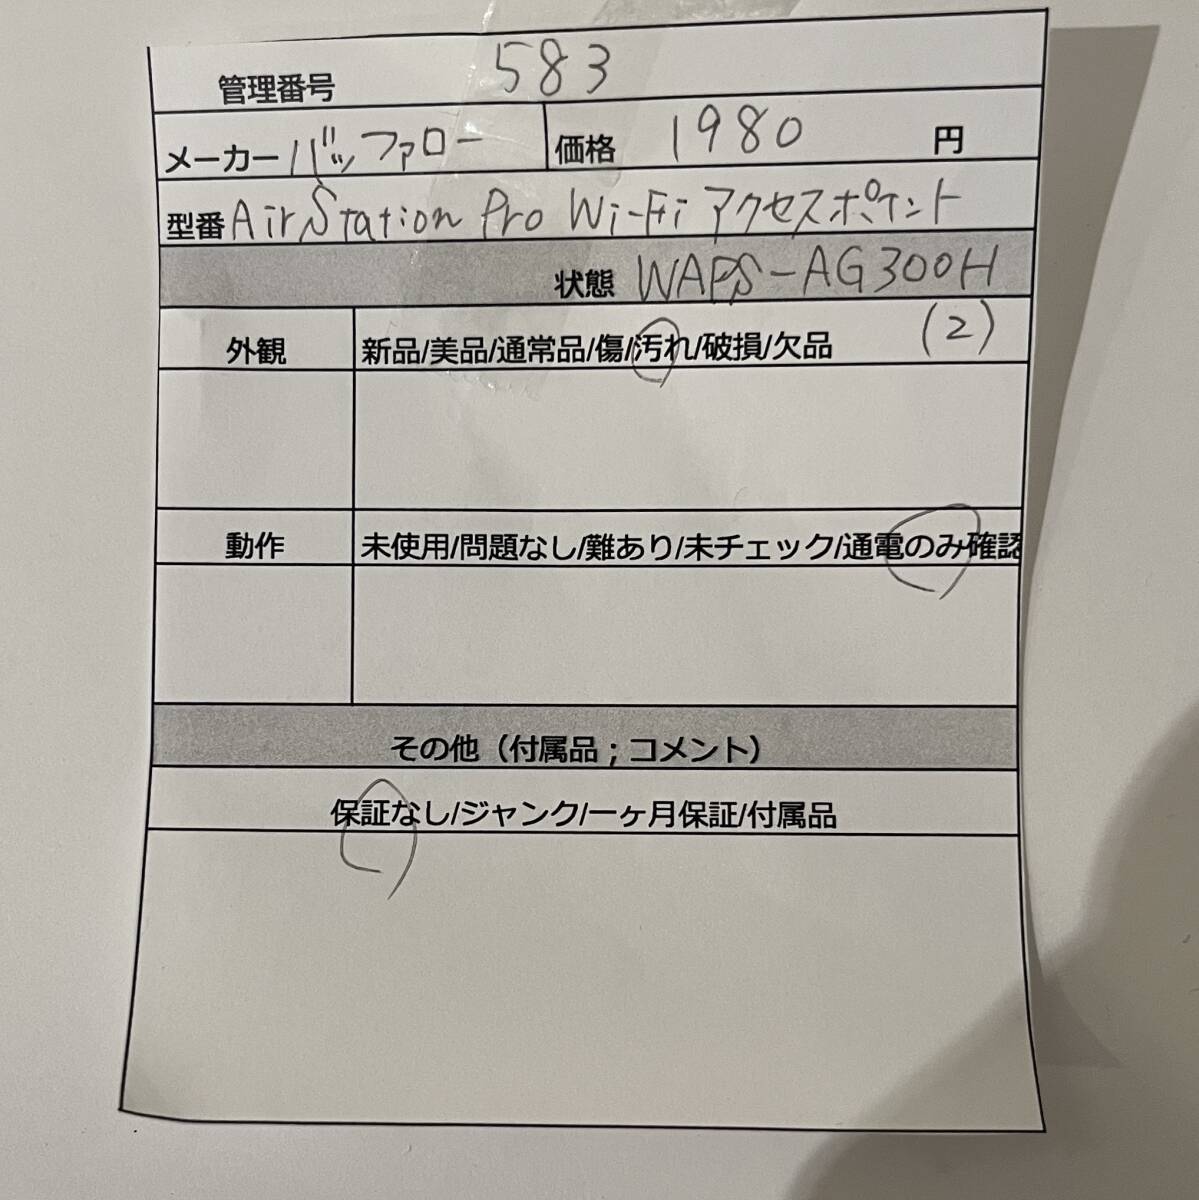 管理番号 583
メーカー バッファロー 価格 1980 円
型番 AirStation Pro Wi-Fi アクセスポイント
状態 WAPS-AG300H
外観 新品/美品/通常品/傷/汚れ/破損/欠品 (2)
動作 未使用/問題なし/難あり/未チェック/通電のみ確認
その他（付属品；コメント）
保証なし/ジャンク/一ヶ月保証/付属品